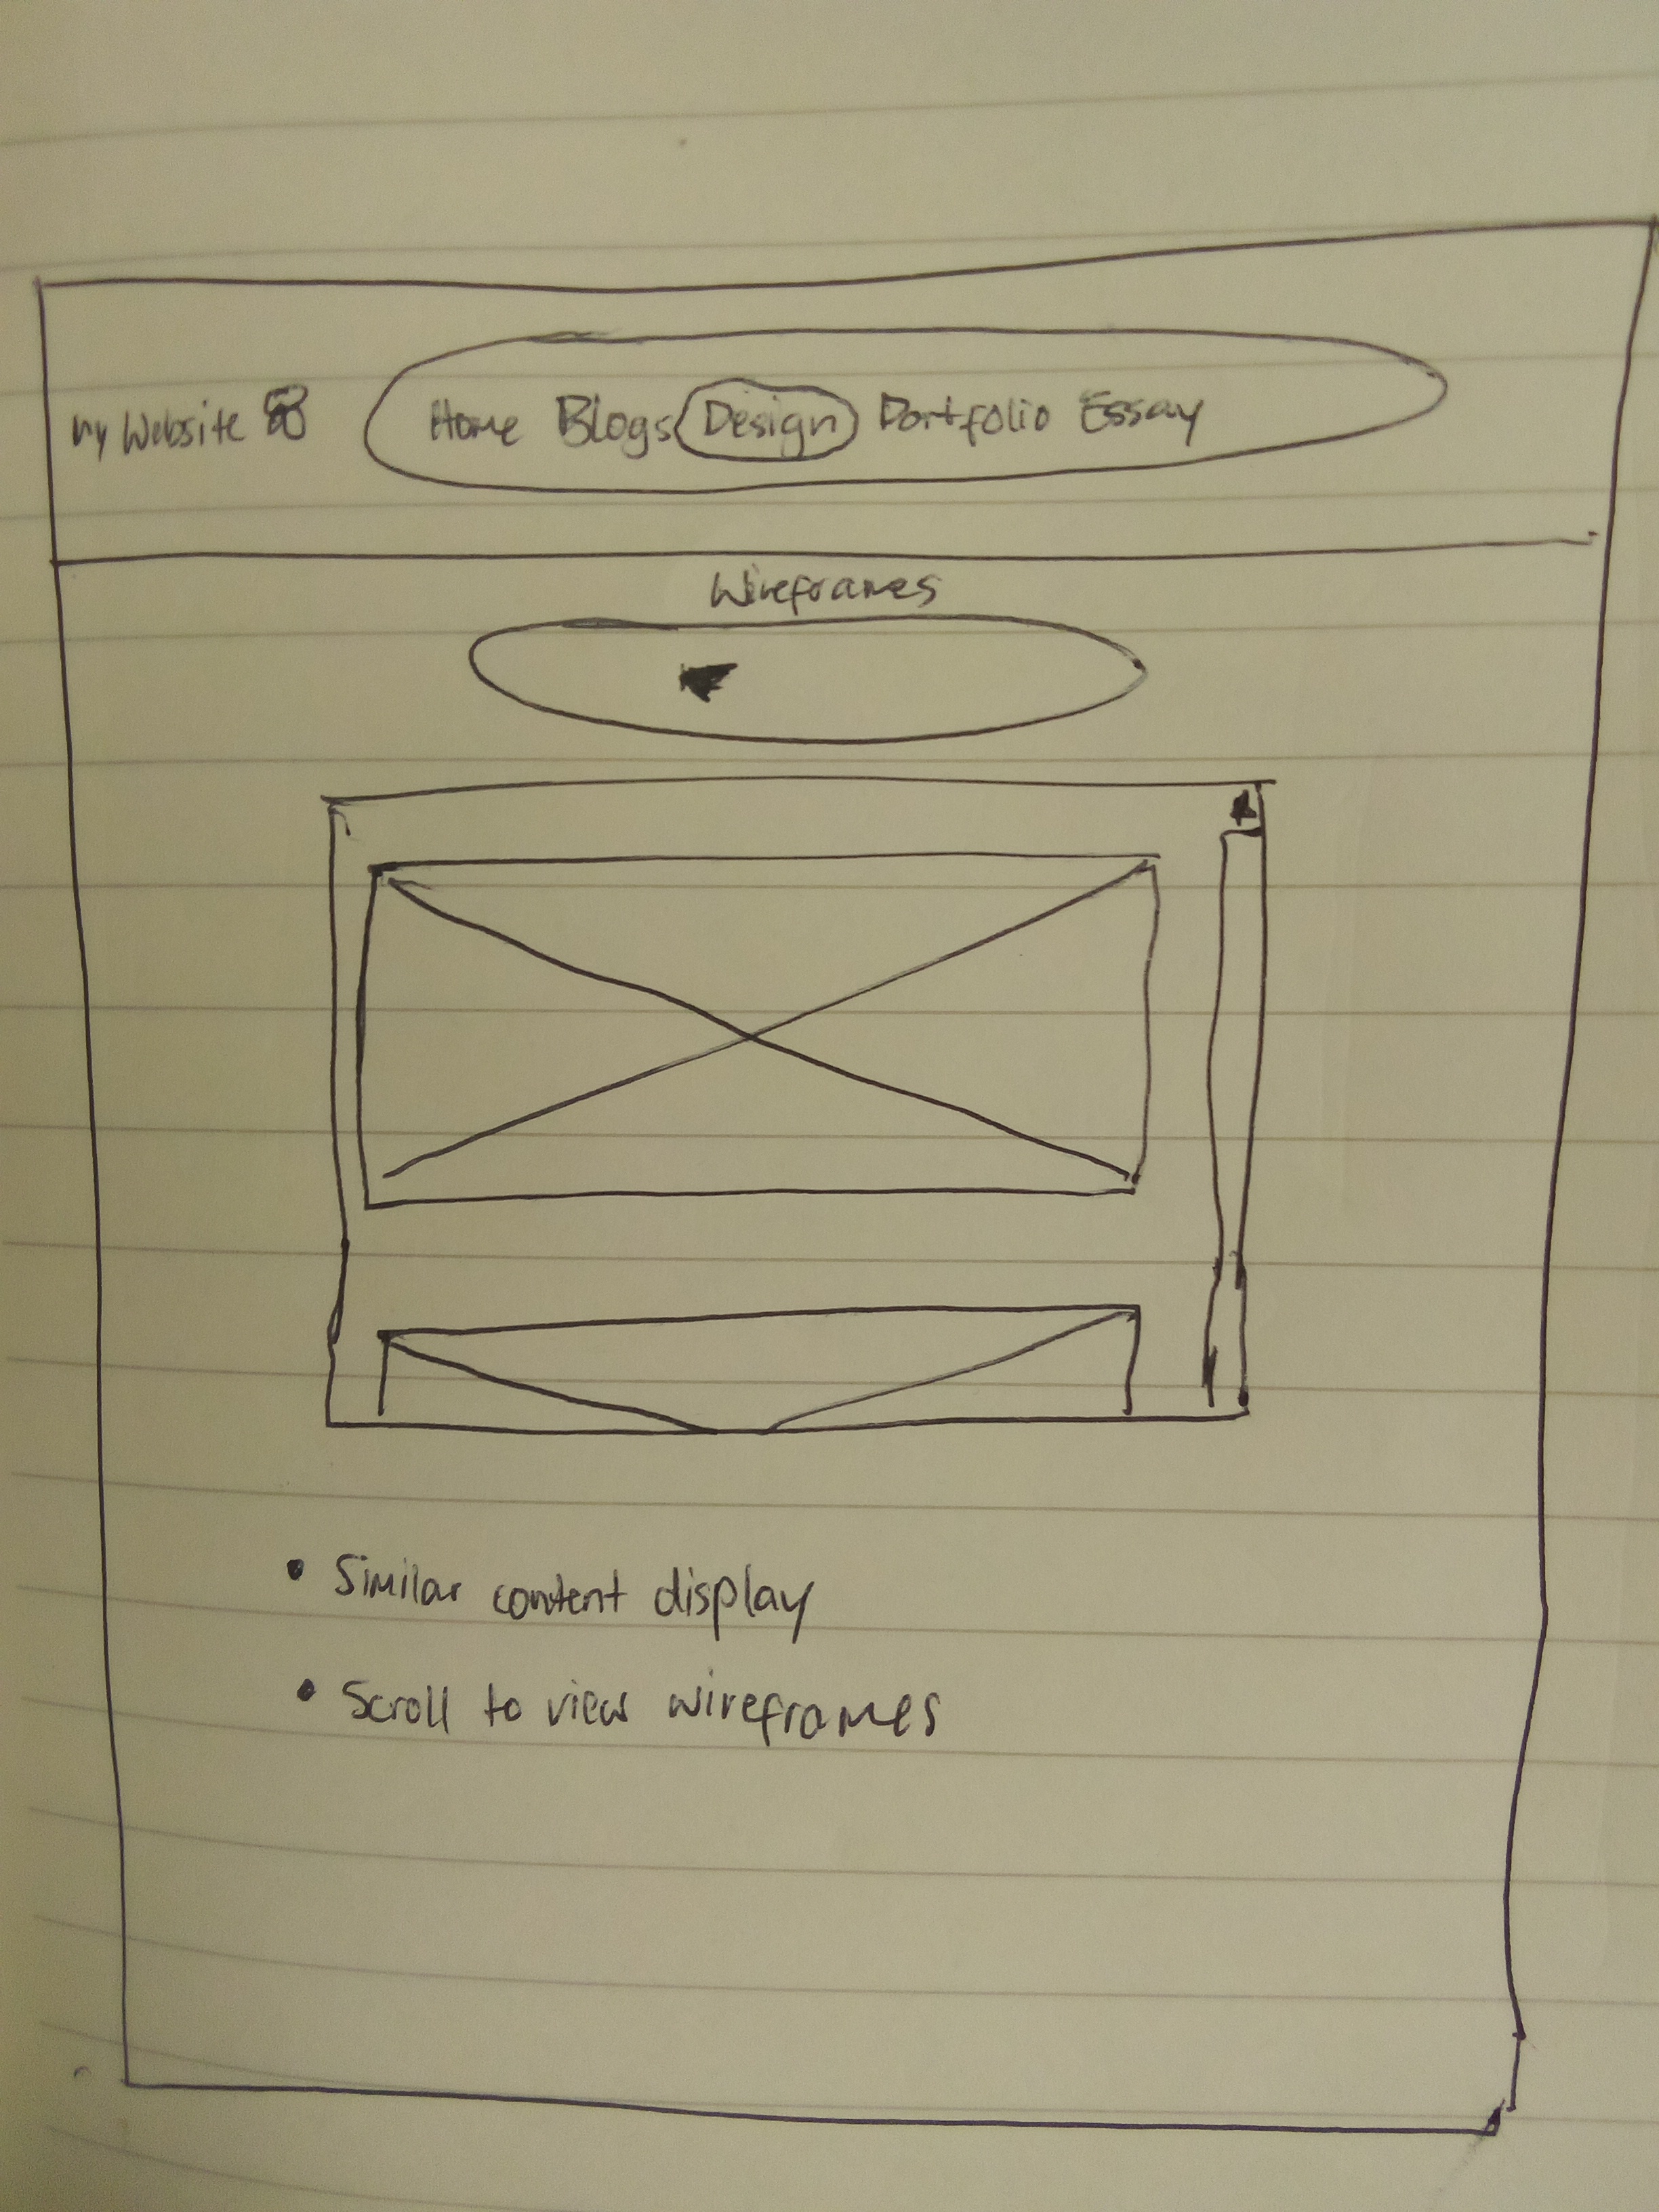 My Website
Home Blogs Design Portfolio Essay
Wireframes
• Similar content display
• Scroll to view wireframes